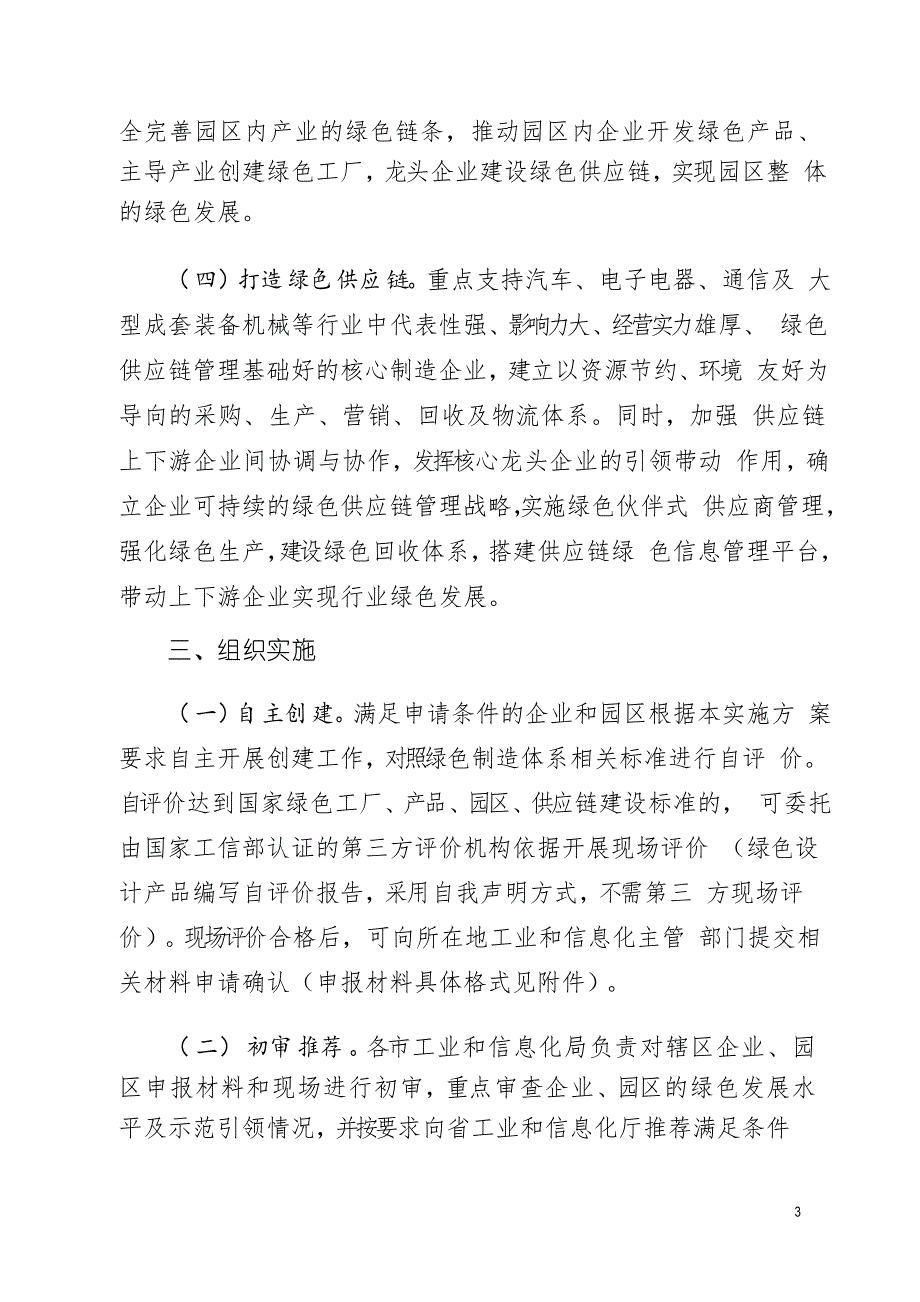 全完善园区内产业的绿色链条，推动园区内企业开发绿色产品、
主导产业创建绿色工厂，龙头企业建设绿色供应链，实现园区整 体
的绿色发展。
（四）打造绿色供应链。重点支持汽车、电子电器、通信及 大
型成套装备机械等行业中代表性强、影响力大、经营实力雄厚、 绿色
供应链管理基础好的核心制造企业，建立以资源节约、环境 友好为
导向的采购、生产、营销、回收及物流体系。同时，加强 供应链
上下游企业间协调与协作，发挥核心龙头企业的引领带动 作用，确
立企业可持续的绿色供应链管理战略，实施绿色伙伴式 供应商管理，
强化绿色生产，建设绿色回收体系，搭建供应链绿 色信息管理平台，
带动上下游企业实现行业绿色发展。
三、组织实施
（一）自主创建。满足申请条件的企业和园区根据本实施方 案
要求自主开展创建工作，对照绿色制造体系相关标准进行自评 价。
自评价达到国家绿色工厂、产品、园区、供应链建设标准的， 可委托
由国家工信部认证的第三方评价机构依据开展现场评价 （绿色设
计产品编写自评价报告，采用自我声明方式，不需第三 方现场评
价）。现场评价合格后，可向所在地工业和信息化主管 部门提交相
关材料申请确认（申报材料具体格式见附件）。
（二） 初审推荐。各市工业和信息化局负责对辖区企业、园
区申报材料和现场进行初审，重点审查企业、园区的绿色发展水
平及示范引领情况，并按要求向省工业和信息化厅推荐满足条件
3